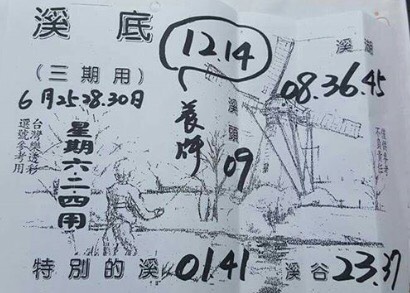 溪底
12.14
溪湖
(三期用)
08.36.45
6月25.28.30日
養牌
溪頭
09
台灣樂透彩
選號參考用
星期六·二·四用
僅供參考
不負責任
特別的溪 01.41
溪谷 23.37